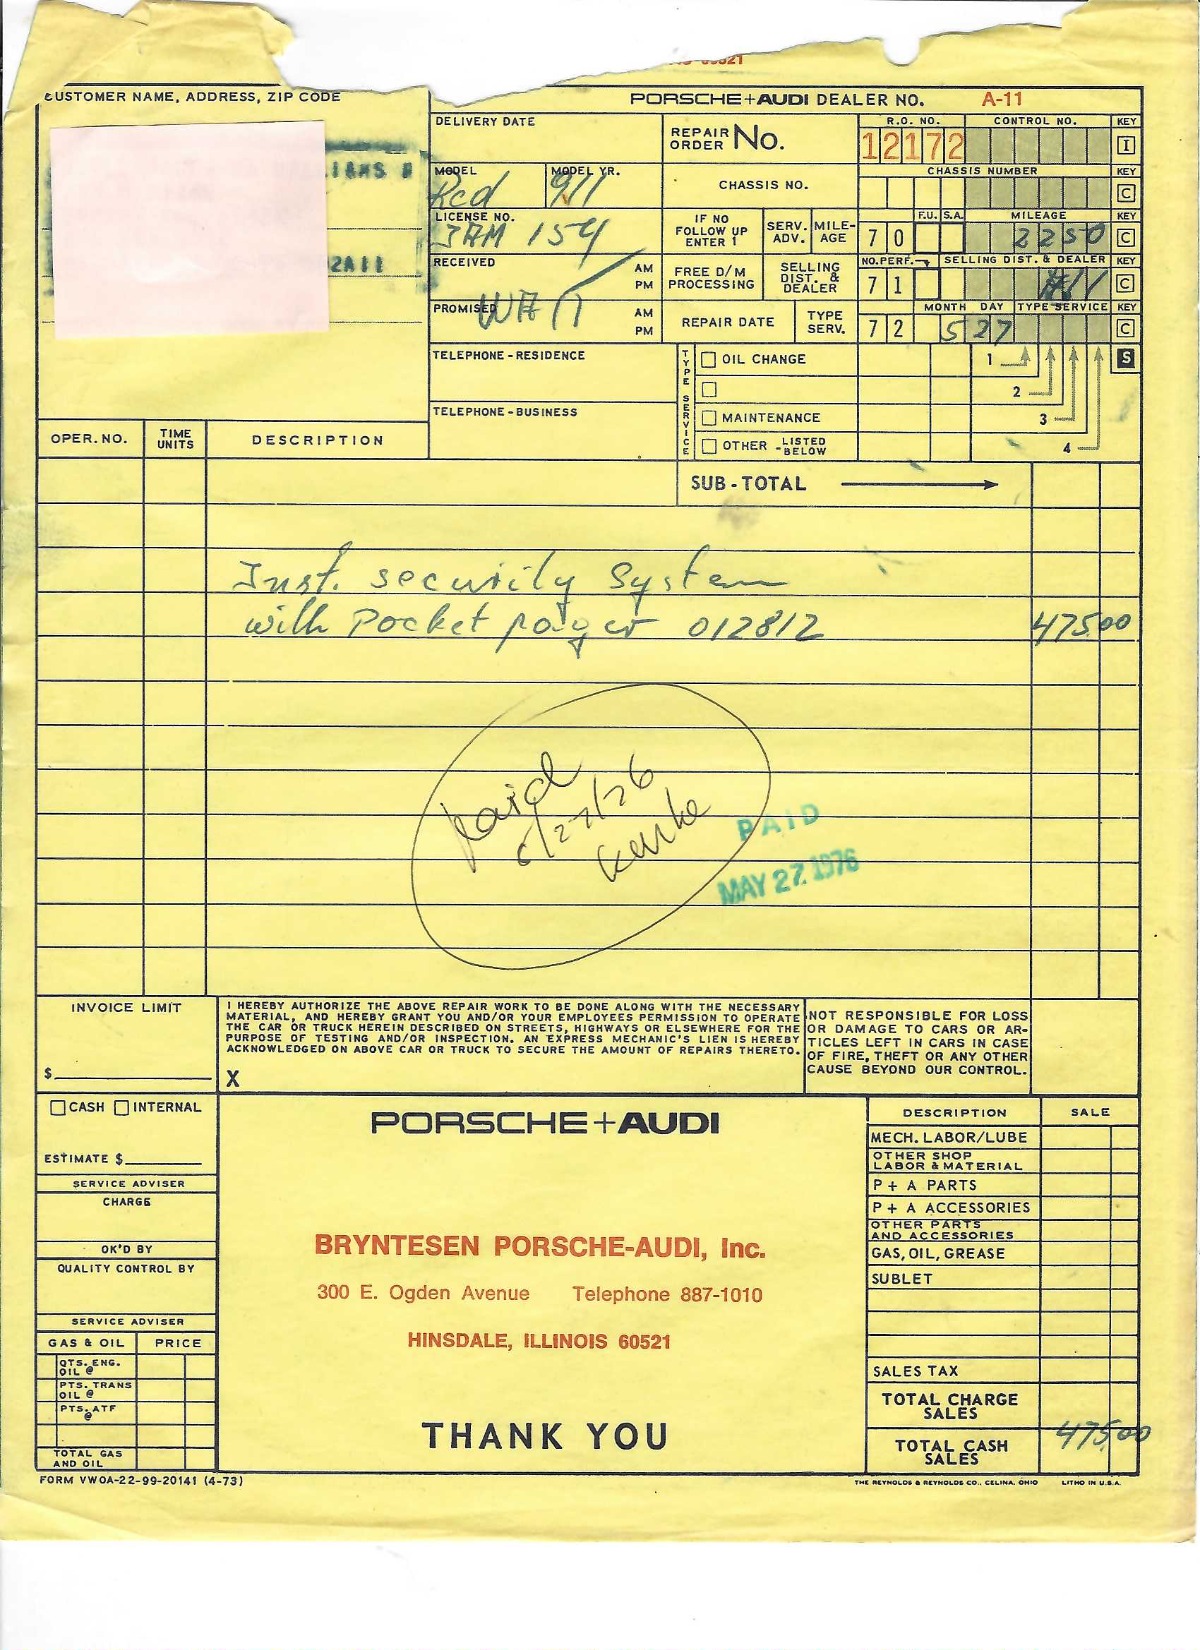 60521
CUSTOMER NAME, ADDRESS, ZIP CODE
PORSCHE+AUDI DEALER NO. A-11
DELIVERY DATE
REPAIR ORDER No.
R.O. NO. CONTROL NO. KEY
12172 I
MODEL MODEL YR.
Red 911
CHASSIS NO.
CHASSIS NUMBER KEY
C
LICENSE NO.
JAM 154
IF NO FOLLOW UP ENTER 1
SERV. ADV.
MILE-AGE
F.U. S.A. MILEAGE KEY
70 2250 C
RECEIVED AM PM
FREE D/M PROCESSING
SELLING DIST. & DEALER
NO.PERF. SELLING DIST. & DEALER KEY
71 A11 C
PROMISED AM PM
WAIT
REPAIR DATE
TYPE SERV.
MONTH DAY TYPE SERVICE KEY
72 5 27 C
TELEPHONE - RESIDENCE
TELEPHONE - BUSINESS
TYPE SERVICE
OIL CHANGE
MAINTENANCE
OTHER - LISTED BELOW
1
2
3
4
S
OPER. NO. TIME UNITS DESCRIPTION
SUB - TOTAL
Inst. security System
with Pocket pager 012812 475.00
paid
5/27/76
PAID
MAY 27. 1976
INVOICE LIMIT
$
I HEREBY AUTHORIZE THE ABOVE REPAIR WORK TO BE DONE ALONG WITH THE NECESSARY
MATERIAL, AND HEREBY GRANT YOU AND/OR YOUR EMPLOYEES PERMISSION TO OPERATE
THE CAR OR TRUCK HEREIN DESCRIBED ON STREETS, HIGHWAYS OR ELSEWHERE FOR THE
PURPOSE OF TESTING AND/OR INSPECTION. AN EXPRESS MECHANIC'S LIEN IS HEREBY
ACKNOWLEDGED ON ABOVE CAR OR TRUCK TO SECURE THE AMOUNT OF REPAIRS THERETO.
X
NOT RESPONSIBLE FOR LOSS
OR DAMAGE TO CARS OR AR-
TICLES LEFT IN CARS IN CASE
OF FIRE, THEFT OR ANY OTHER
CAUSE BEYOND OUR CONTROL.
CASH INTERNAL
ESTIMATE $
SERVICE ADVISER
CHARGE
OK'D BY
QUALITY CONTROL BY
SERVICE ADVISER
GAS & OIL PRICE
QTS. ENG. OIL @
PTS. TRANS OIL @
PTS. ATF @
TOTAL GAS AND OIL
PORSCHE+AUDI
BRYNTESEN PORSCHE-AUDI, Inc.
300 E. Ogden Avenue Telephone 887-1010
HINSDALE, ILLINOIS 60521
THANK YOU
DESCRIPTION SALE
MECH. LABOR/LUBE
OTHER SHOP LABOR & MATERIAL
P + A PARTS
P + A ACCESSORIES
OTHER PARTS AND ACCESSORIES
GAS, OIL, GREASE
SUBLET
SALES TAX
TOTAL CHARGE SALES
TOTAL CASH SALES 475.00
FORM VWOA-22-99-20141 (4-73)
THE REYNOLDS & REYNOLDS CO., CELINA, OHIO LITHO IN U.S.A.